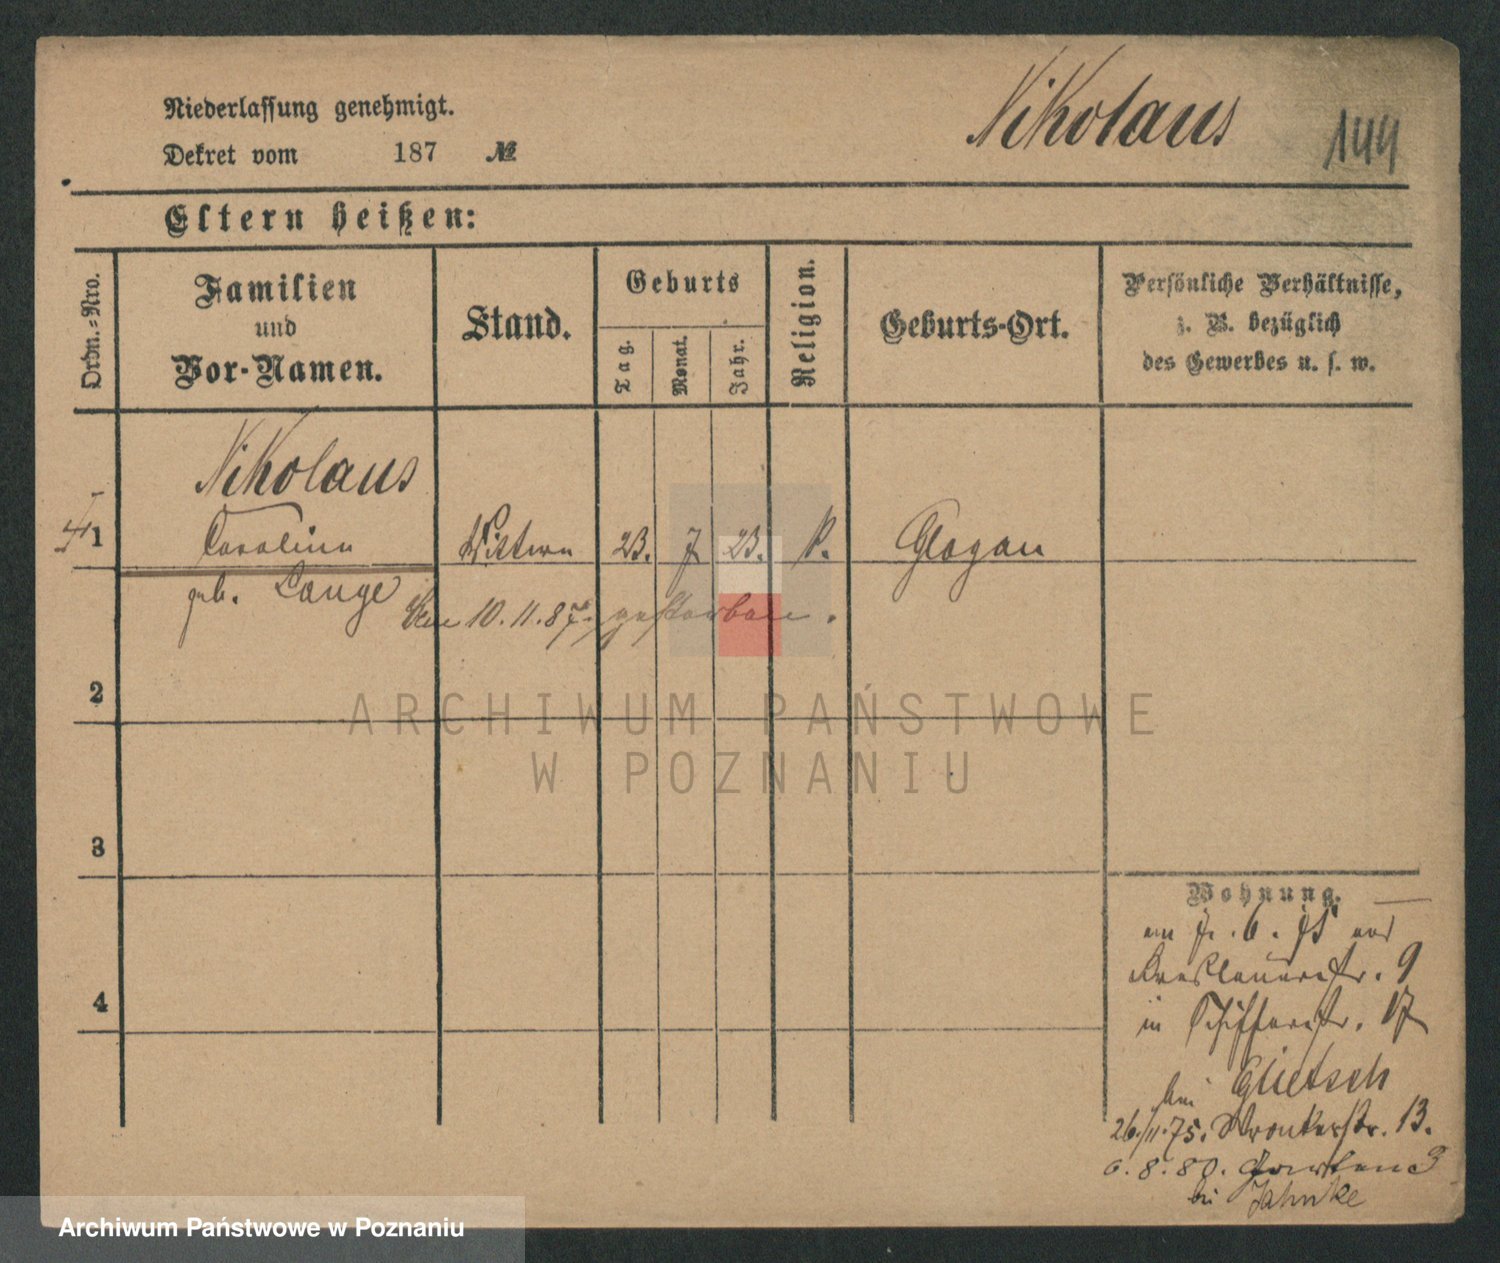 Niederlassung genehmigt.
Nikolaus
144
Dekret vom 187 №
Eltern heißen:
Ordn.-Nro.
Familien
und
Vor-Namen.
Stand.
Geburts
Tag.
Monat.
Jahr.
Religion.
Geburts-Ort.
Persönliche Verhältnisse,
z. B. bezüglich
des Gewerbes u. s. w.
Nikolaus
1 Carolina Wittwe 23. 7 23. Glogau
geb. Lange
10. 11. 87 gestorben.
2
ARCHIWUM PAŃSTWOWE
W POZNANIU
3
Wohnung.
am 7. 6. 75 aus
Breslauerstr. 9
in Schifferstr. 17
bei Glietsch
26./11.75. Wronkerstr. 13.
6. 8. 80. Garten 3
bei Jahnke
4
Archiwum Państwowe w Poznaniu